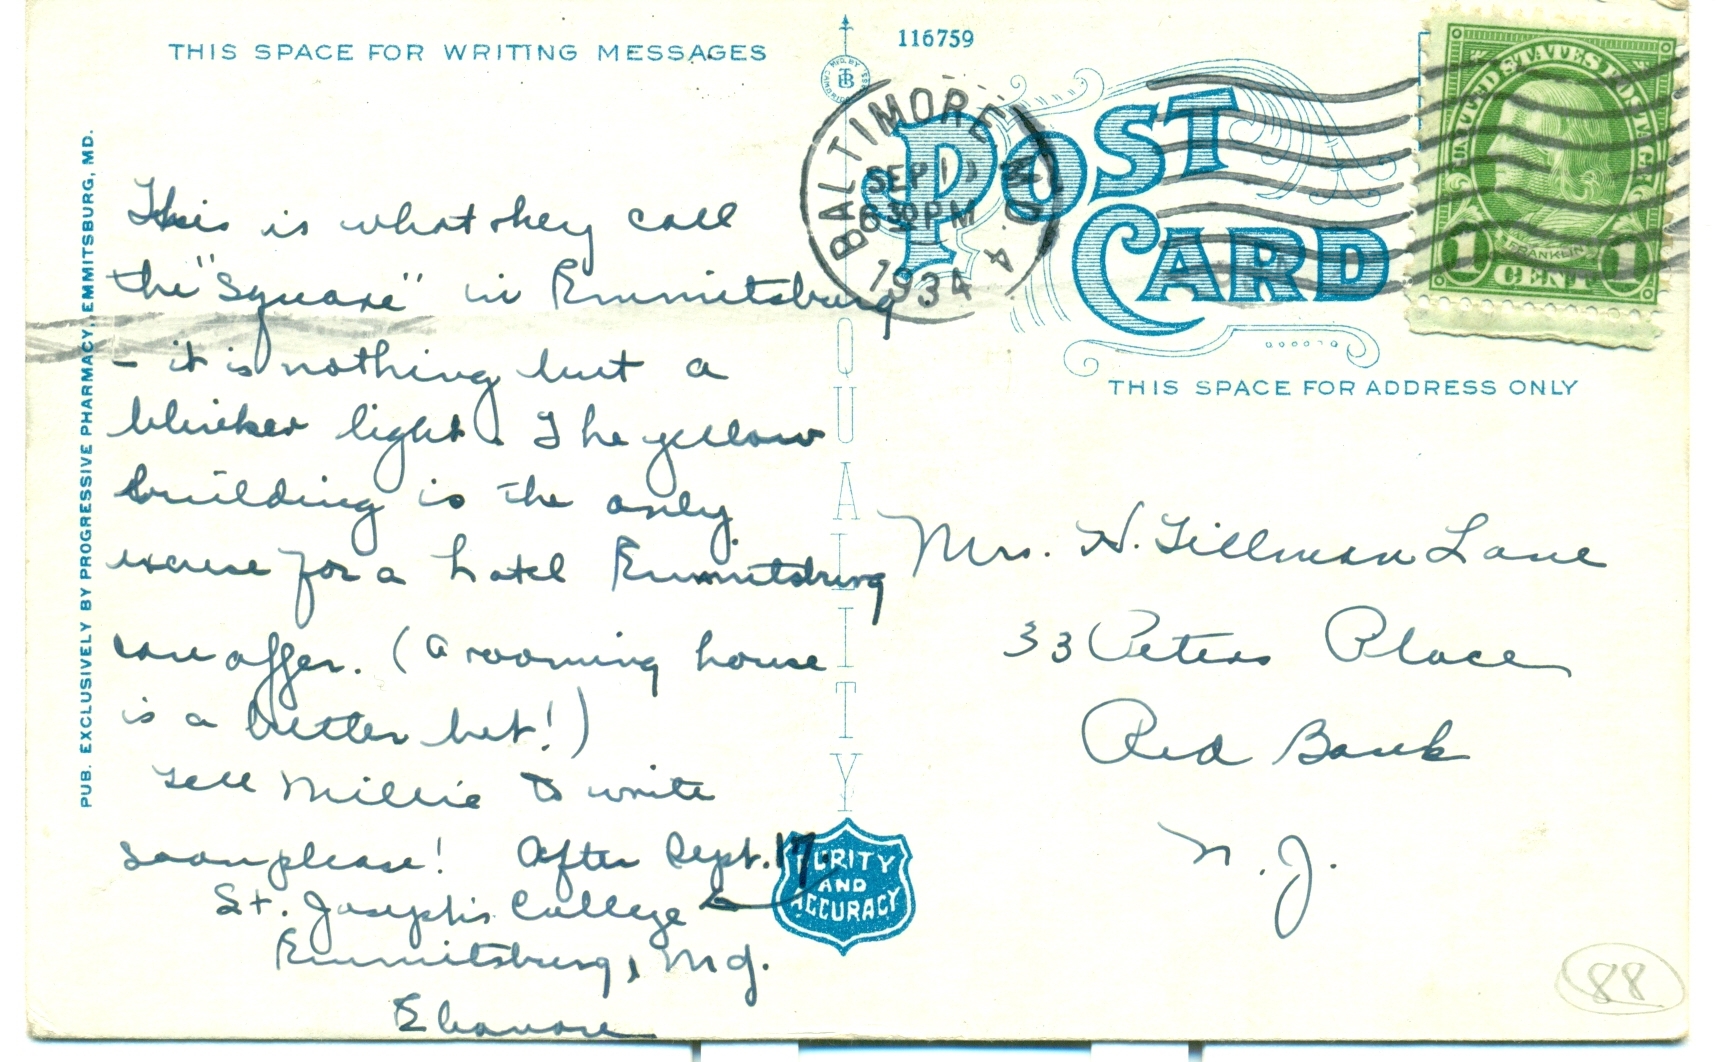 THIS SPACE FOR WRITING MESSAGES
116759
POST
CARD
BALTIMORE MD. 4
SEP 10
6 30 PM
1934
UNITED STATES POSTAGE
FRANKLIN
1 CENT 1
THIS SPACE FOR ADDRESS ONLY
PUB. EXCLUSIVELY BY PROGRESSIVE PHARMACY, EMMITSBURG, MD.
This is what they call
the "Square" in Emmitsburg
- it is nothing but a
blinker light. The yellow
building is the only
excuse for a hotel Emmitsburg
can offer. (A rooming house
is a better bet!)
Tell Millie to write
soon please! After Sept. 17
St. Joseph's College
Emmitsburg, Md.
Eleanore
QUALITY
PURITY
AND
ACCURACY
Mrs. H. Tillman Lane
33 Peters Place
Red Bank
N. J.
88